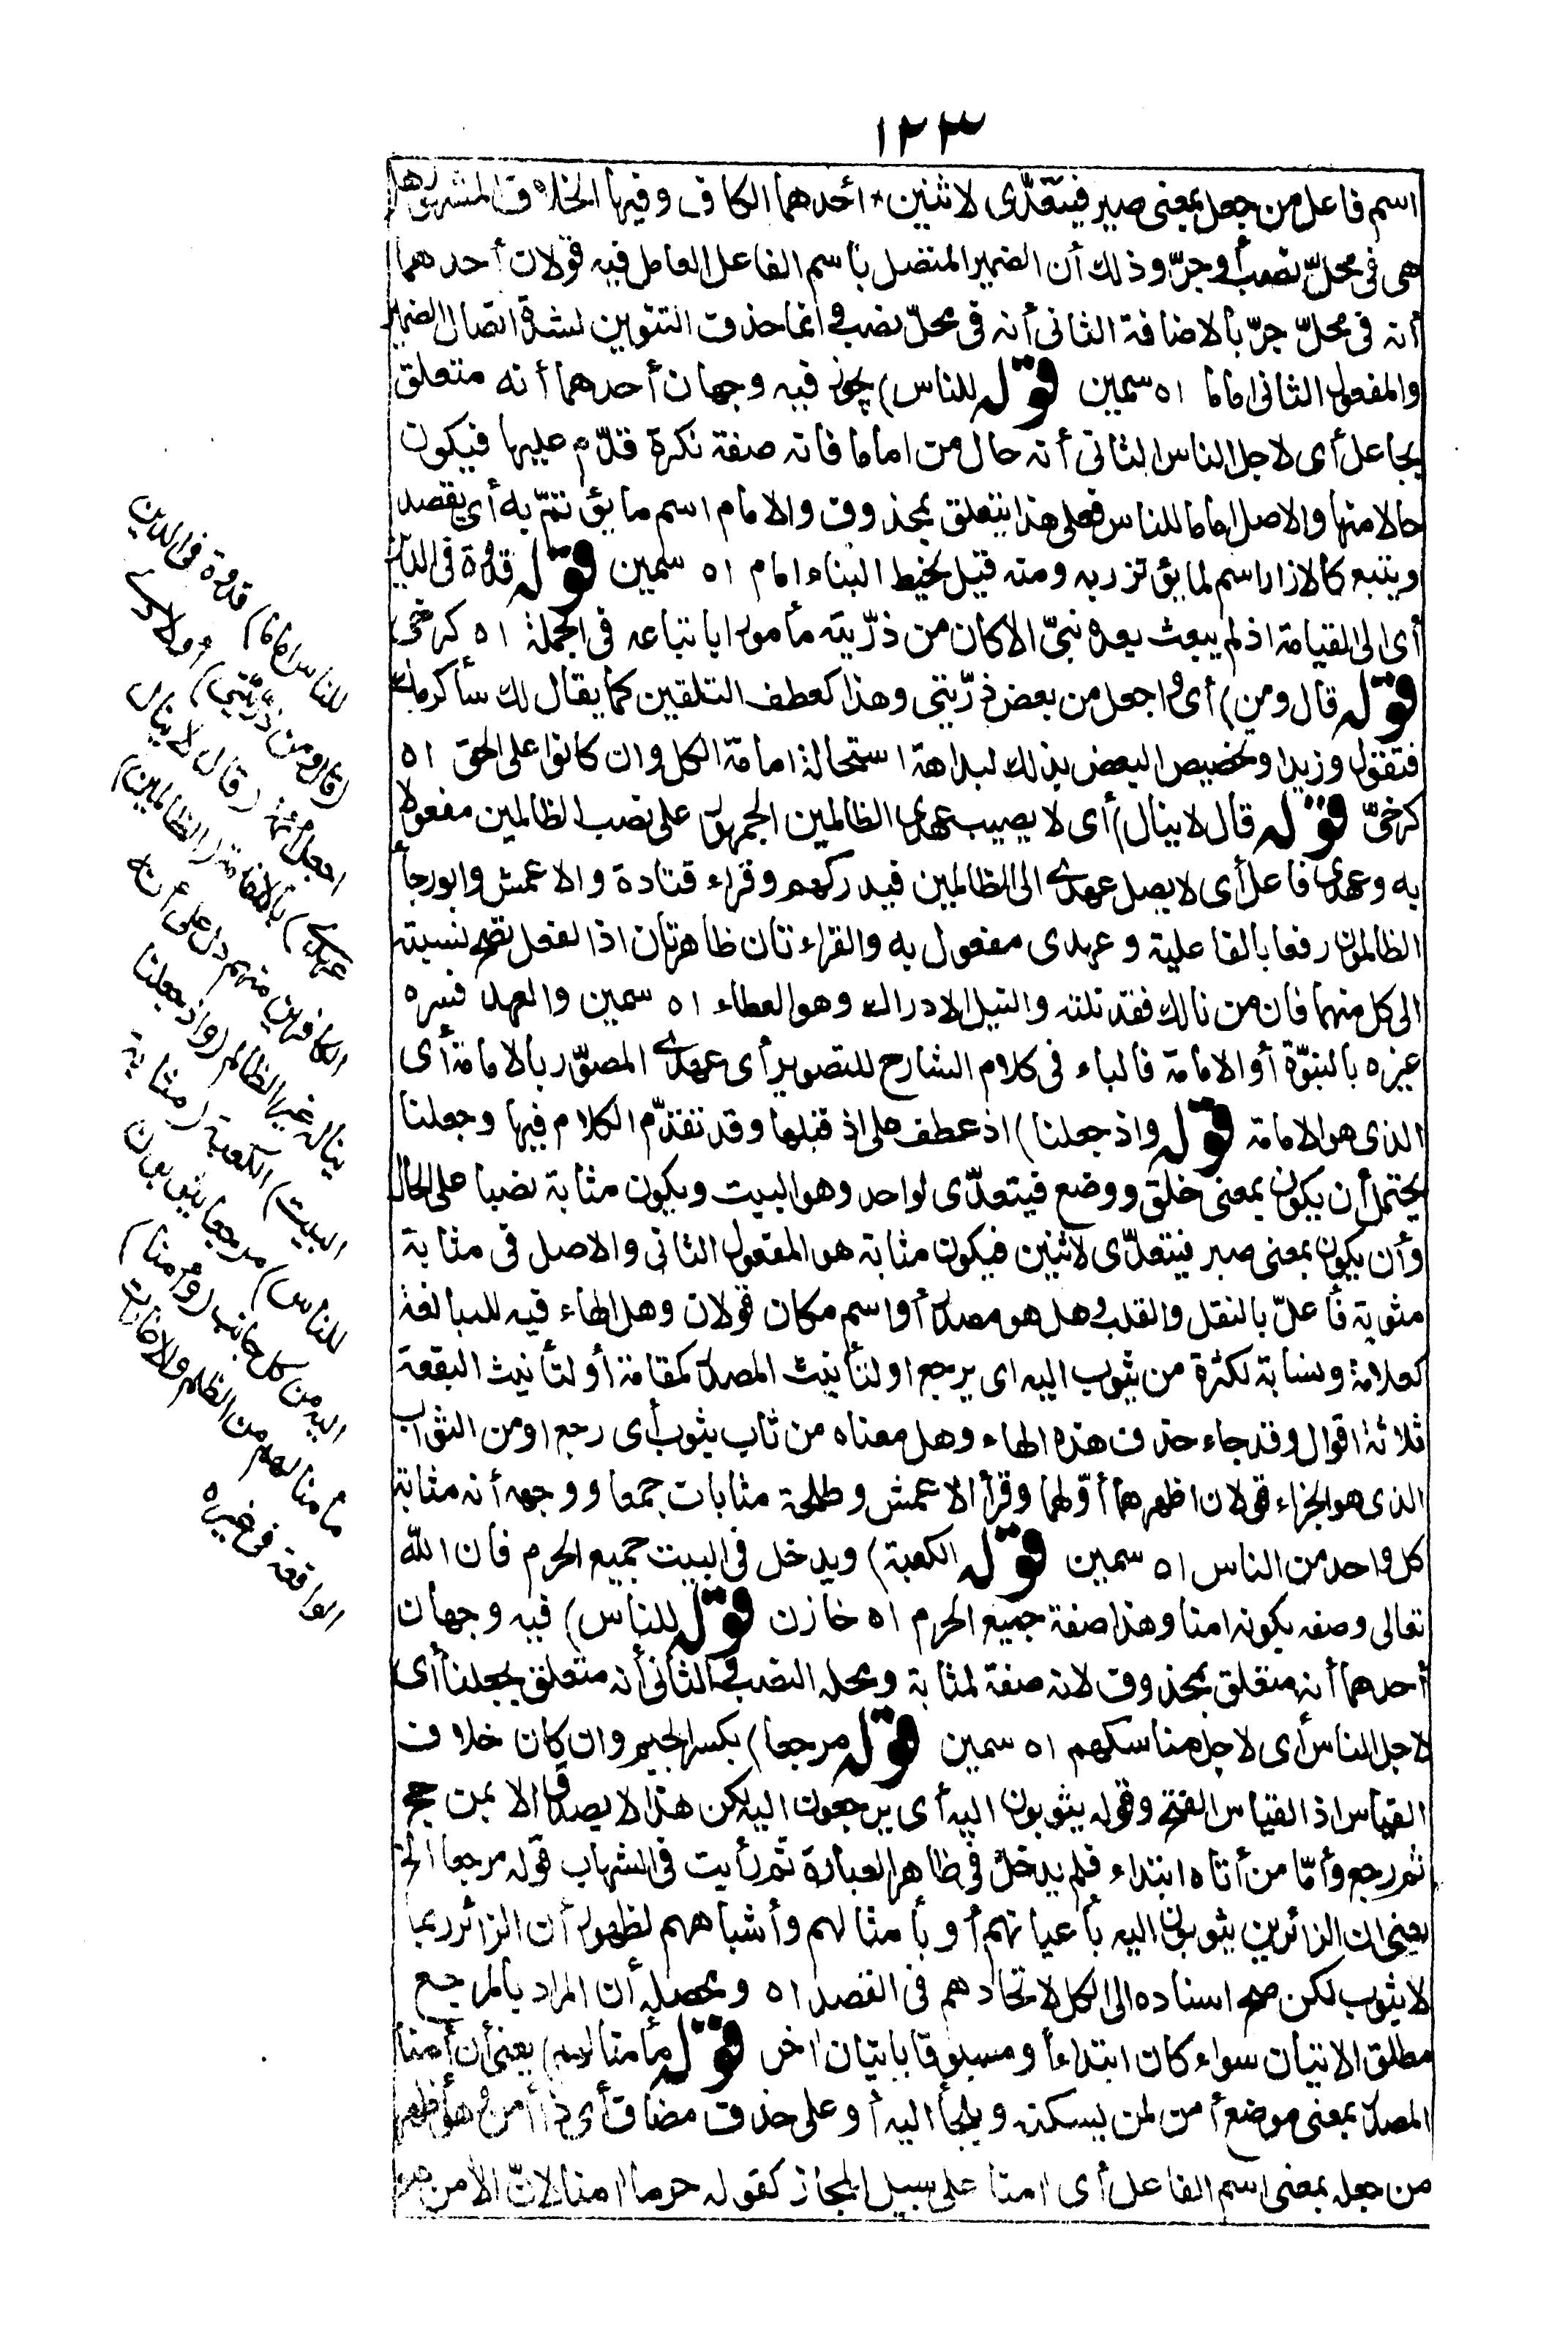 ١٢٣
اسم فاعل من جعل بمعنى صير فيتعدّى لاثنين * أحدهما الكاف وفيها الخلاف المشهور هل
هى فى محلّ نصب أو جرّ وذلك أن الضمير المتصل باسم الفاعل العامل فيه قولان أحدهما
أنه فى محلّ جرّ بالاضافة الثانى أنه فى محلّ نصب وانما حذف التنوين لشدة اتصال الضمير
والمفعول الثانى اماما اه سمين قوله للناس) يجوز فيه وجهان أحدهما أنه متعلق
بجاعل أى لاجل الناس الثانى أنه حال من اماما فانه صفة نكرة قدّم عليها فيكون
حالا منها والاصل اماما للناس فعلى هذا يتعلق بمحذوف والامام اسم ما يؤتمّ به أى يقصد
ويتبع كالازار اسم لما يؤتزر به ومنه قيل لخيط البناء امام اه سمين قوله قدوة فى الدين
أى الى القيامة اذ لم يبعث بعده نبىّ الا كان من ذرّيته مأمورا باتباعه فى الجملة اه كرخى
قوله قال ومن) أى واجعل من بعض ذرّيتى وهذا كعطف التلقين كما يقال لك سأكرمك
فتقول وزيدا وتخصيص البعض بذلك لبداهة استحالة امامة الكل وان كانوا على الحق اه
كرخىّ قوله قال لا ينال) أى لا يصيب عهدى الظالمين الجمهور على نصب الظالمين مفعولا
به وعهدى فاعل أى لا يصل عهدى الى الظالمين فيدركهم وقراء قتادة والاعمش وابورجاء
الظالمون رفعا بالفاعلية وعهدى مفعول به والقراءتان ظاهرتان اذ الفعل تصح نسبته
الى كل منهما فان من نالك فقد نلته والنيل الادراك وهو العطاء اه سمين والعهد فسره
غيره بالنبوّة أو الامامة فالباء فى كلام الشارح للتصوير أى عهدى المصوّر بالامامة أى
الذى هو الامامة قوله واذ جعلنا) اذ عطف على اذ قبلها وقد تقدّم الكلام فيها وجعلنا
يحتمل أن يكون بمعنى خلق ووضع فيتعدّى لواحد وهو البيت ويكون مثابة نصبا على الحال
وأن يكون بمعنى صير فيتعدّى لاثنين فيكون مثابة هو المفعول الثانى والاصل فى مثابة
مثوبة فأعلّ بالنقل والقلب وهل هو مصدر أو اسم مكان قولان وهل الهاء فيه للمبالغة
كعلامة ونسابة لكثرة من يثوب اليه اى يرجع او لتأنيث المصدر كمقامة أو لتأنيث البقعة
ثلاثة اقوال وقد جاء حذف هذه الهاء وهل معناه من ثاب يثوب أى رجع او من الثواب
الذى هو الجزاء قولان اظهرهما أوّلهما وقرأ الاعمش وطلحة مثابات جمعا ووجهه أنه مثابة
كل واحد من الناس اه سمين قوله الكعبة) ويدخل فى البيت جميع الحرم فان الله
تعالى وصفه بكونه امنا وهذا صفة جميع الحرم اه خازن قوله للناس) فيه وجهان
أحدهما أنه متعلق بمحذوف لانه صفة لمثابة ومحله النصب والثانى أنه متعلق بجعلنا أى
لاجل الناس أى لاجل مناسكهم اه سمين قوله مرجعا) بكسر الجيم وان كان خلاف
القياس اذ القياس الفتح وقوله يثوبون اليه أى يرجعون اليه لكن هذا لا يصدق الا بمن حج
ثم رجع وأمّا من أتاه ابتداء فلم يدخل فى ظاهر العبارة ثم رأيت فى الشهاب قوله مرجعا الخ
يعنى ان الزائرين يثوبون اليه بأعيانهم أو بأمثالهم وأشباههم لظهور أن الزائر ربما
لا يثوب لكن صح اسناده الى الكل لاتحادهم فى القصد اه ومحصله أن المراد بالمرجع
مطلق الاتيان سواء كان ابتداءا ومسبوقا باتيان اخر قوله مأمنا لهم) يعنى أن أمنا
المصدر بمعنى موضع أمن لمن يسكنه ويلجأ اليه أو على حذف مضاف أى ذا أمن وهو أظهر
من جعله بمعنى اسم الفاعل أى امنا على سبيل المجاز كقوله حرما امنا لانّ الأمن هو
للناس اماما) قدوة فى الدين
(قال ومن ذرّيتى) أولادى
اجعل أئمة (قال لا ينال
عهدى) بالامامة (الظالمين)
الكافرين منهم دل على أنه
ينال غير الظالم (واذ جعلنا
البيت) الكعبة (مثابة
للناس) مرجعا يثوبون
اليه من كل جانب (وامنا)
مأمنا لهم من الظلم والاغارات
الواقعة فى غيره